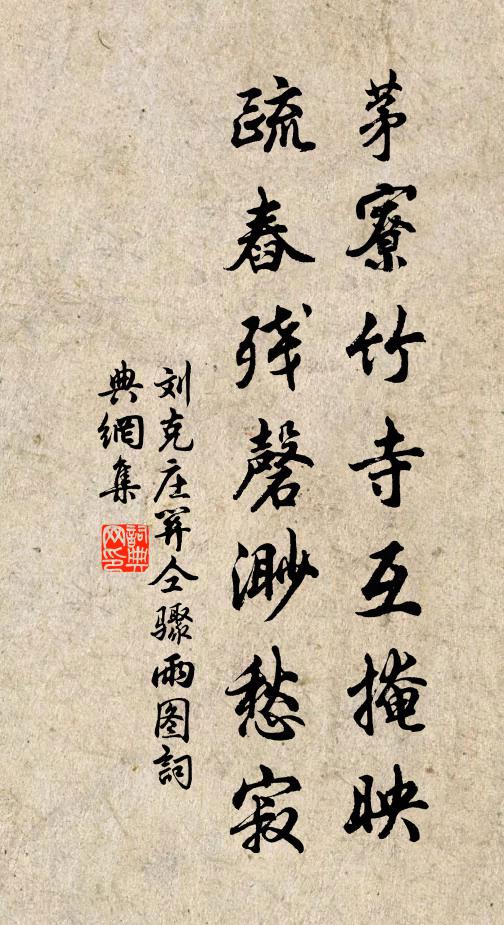 茅寮竹寺互掩映
疏舂残磬渺愁寂
刘克庄筓仝骤雨图詞
典網集
詞典網印